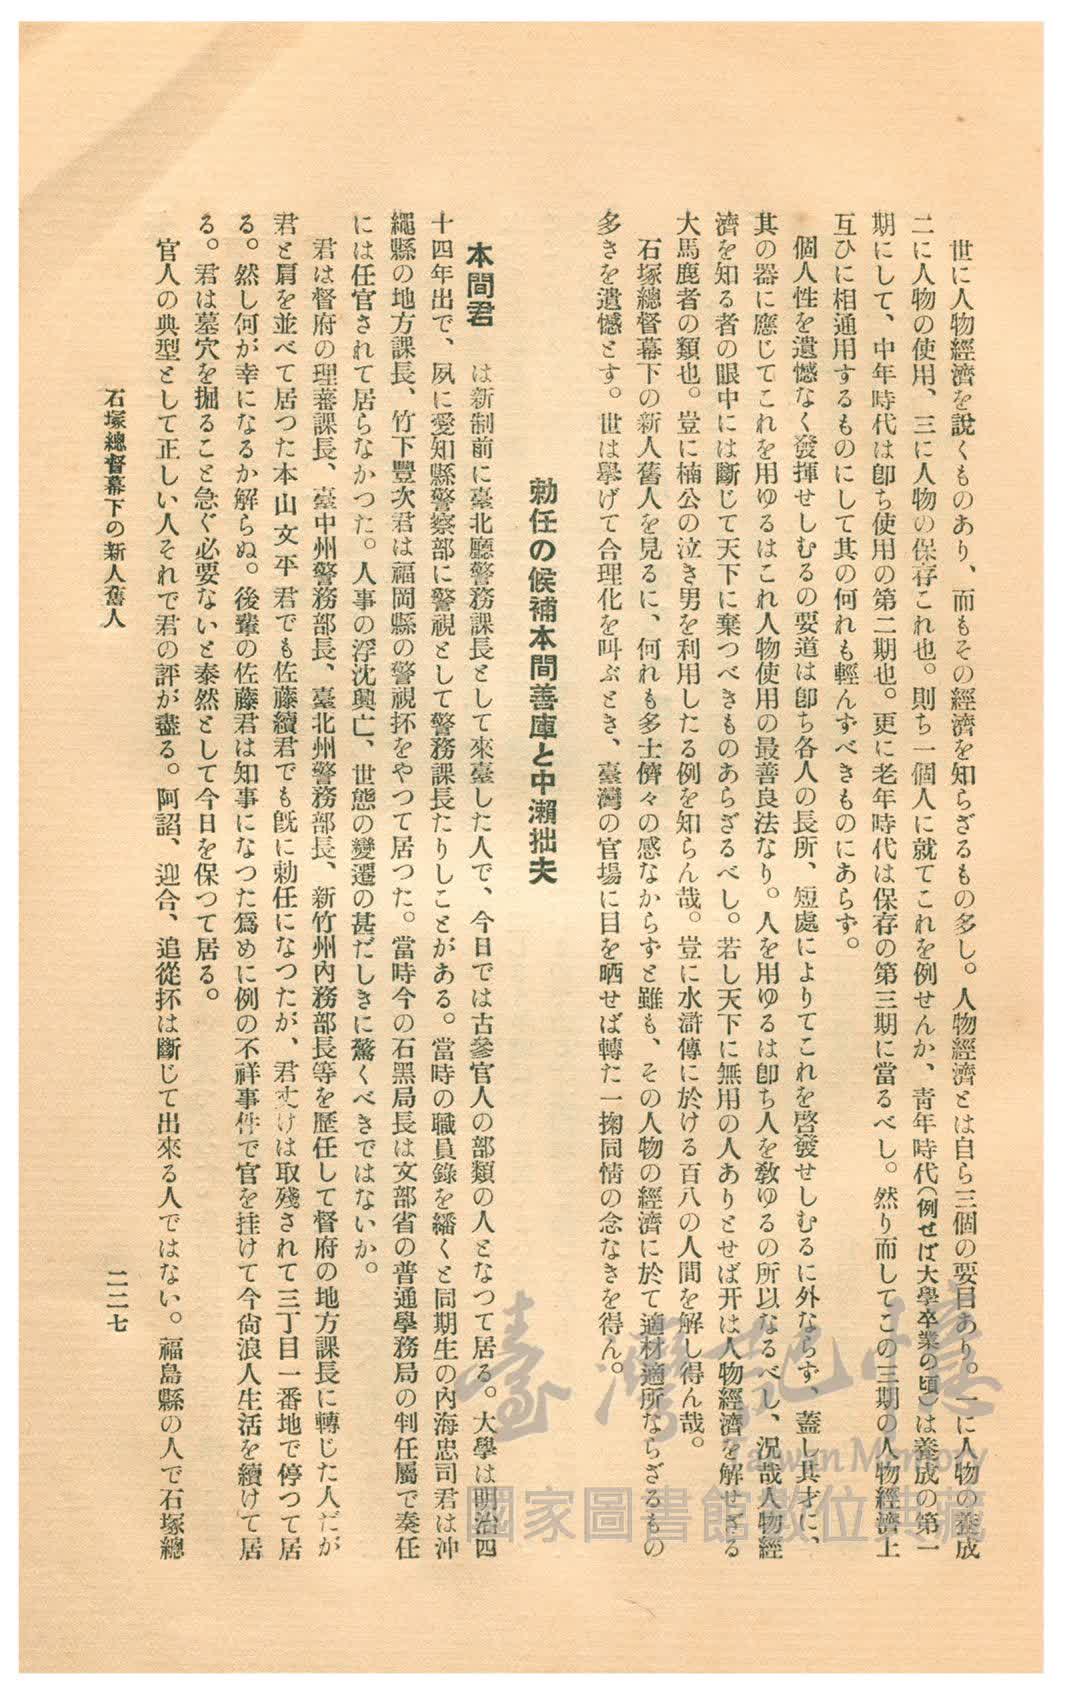 世に人物經濟を說くものあり、而もその經濟を知らざるもの多し。人物經濟とは自ら三個の要目あり。一に人物の養成
二に人物の使用、三に人物の保存これ也。則ち一個人に就てこれを例せんか、靑年時代(例せば大學卒業の頃)は養成の第一
期にして、中年時代は卽ち使用の第二期也。更に老年時代は保存の第三期に當るべし。然り而してこの三期の人物經濟上
互ひに相通用するものにして其の何れも輕んずべきものにあらず。
個人性を遺憾なく發揮せしむるの要道は卽ち各人の長所、短處によりてこれを啓發せしむるに外ならず、蓋し其才に、
其の器に應じてこれを用ゆるはこれ人物使用の最善良法なり。人を用ゆるは卽ち人を敎ゆるの所以なるべし、況哉人物經
濟を知る者の眼中には斷じて天下に棄つべきものあらざるべし。若し天下に無用の人ありとせば开は人物經濟を解せざる
大馬鹿者の類也。豈に楠公の泣き男を利用したる例を知らん哉。豈に水滸傳に於ける百八の人間を解し得ん哉。
石塚總督幕下の新人舊人を見るに、何れも多士儕々の感なからずと雖も、その人物の經濟に於て適材適所ならざるもの
多きを遺憾とす。世は擧げて合理化を叫ぶとき、臺灣の官場に目を晒せば轉た一掬同情の念なきを得ん。
勅任の候補本間善庫と中瀨拙夫
本間君 は新制前に臺北廳警務課長として來臺した人で、今日では古參官人の部類の人となつて居る。大學は明治四
十四年出で、夙に愛知縣警察部に警視として警務課長たりしことがある。當時の職員錄を繙くと同期生の內海忠司君は沖
繩縣の地方課長、竹下豐次君は福岡縣の警視抔をやつて居つた。當時今の石黑局長は文部省の普通學務局の判任屬で奏任
には任官されて居らなかつた。人事の浮沈興亡、世態の變遷の甚だしきに驚くべきではないか。
君は督府の理蕃課長、臺中州警務部長、臺北州警務部長、新竹州內務部長等を歷任して督府の地方課長に轉じた人だが
君と肩を並べて居つた本山文平君でも佐藤續君でも旣に勅任になつたが、君丈けは取殘されて三丁目一番地で停つて居
る。然し何が幸になるか解らぬ。後輩の佐藤君は知事になつた爲めに例の不祥事件で官を挂けて今尙浪人生活を續けて居
る。君は墓穴を掘ること急ぐ必要ないと泰然として今日を保つて居る。
官人の典型として正しい人それで君の評が盡る。阿諂、迎合、追從抔は斷じて出來る人ではない。福島縣の人で石塚總
石塚總督幕下の新人舊人
二二七
臺灣記憶
Taiwan Memory
國家圖書館數位典藏